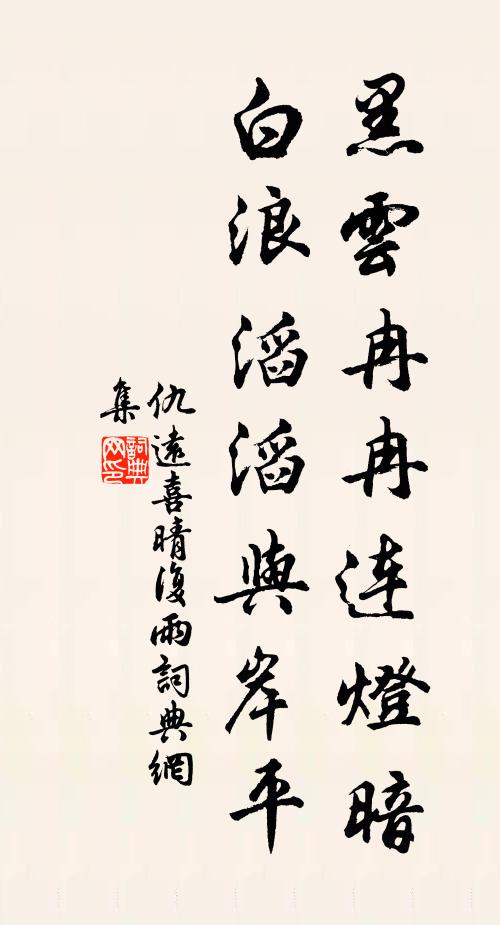 黑雲冉冉連燈暗
白浪滔滔與岸平
仇遠喜晴復雨詞典網
集
詞典
网印